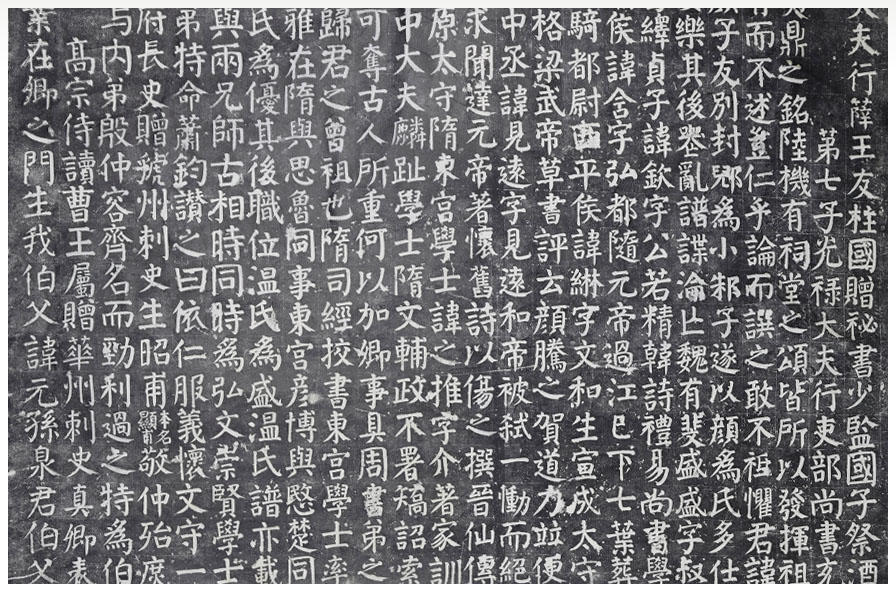 大夫行薛王友柱國贈秘書少監國子祭酒
第七子光祿大夫行吏部尚書充
夷鼎之銘陸機有祠堂之頌皆所以發揮祖
有而不述豈仁乎論而譔之敢不祗懼君諱
顏子友別封郳為小邾子遂以顏為氏多仕
樂其後喪亂譜諜淪亡魏有斐盛盛字叔
繹貞子諱欽字公若精韓詩禮易尚書學
侯諱含字弘都隨元帝過江已下七葉葬
騎都尉西平侯諱綝字文和生宣成太守
格梁武帝草書評云顏騰之賀道力竝便
中丞諱見遠字見遠和帝被弒一慟而絕
求聞達元帝著懷舊詩以傷之撰晉仙傳
原太守隋東宮學士諱之推字介著家訓
中大夫麟趾學士隋文輔政不署矯詔索
可奪古人所重何以加卿事具周書弟之
歸君之曾祖也隋司經挍書東宮學士率
雅在隋與思魯同事東宮彥博與愍楚同
氏為優其後職位溫氏為盛溫氏譜亦載
與兩兄師古相時同時為弘文崇賢學士
弟特命蕭鈞讚之曰依仁服義懷文守一
府長史贈虢州刺史生昭甫本名顯甫敬仲殆庶
与內弟殷仲容齊名而勁利過之特為伯
高宗侍讀曹王屬贈華州刺史真卿表
業在卿之門生我伯父諱元孫泉君伯父